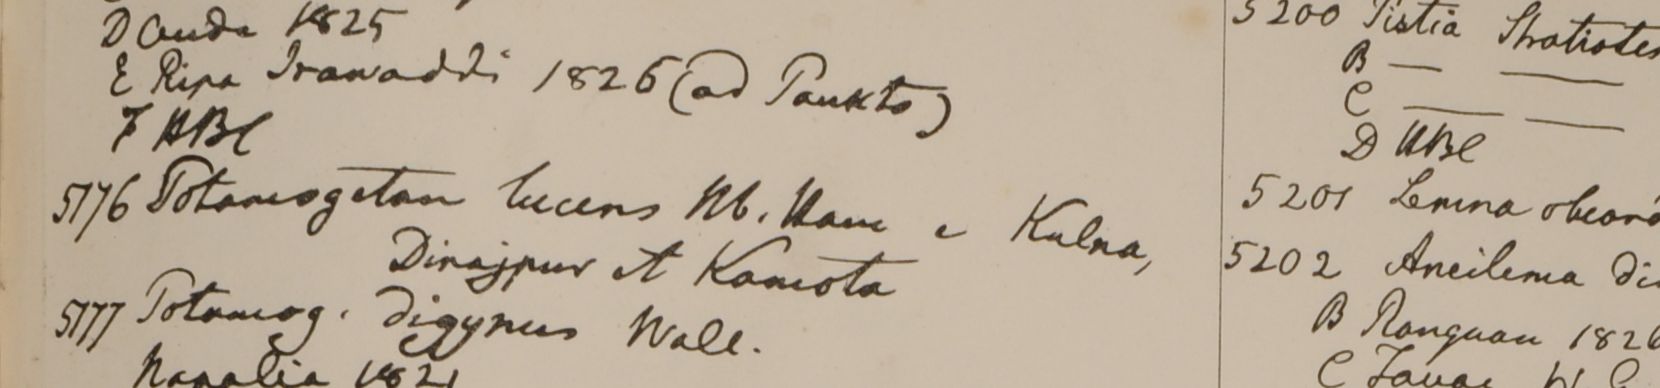 D Oude 1825
E Ripa Irawaddi 1826 (ad Paukto)
F HBC
5176 Potamogeton lucens Hb. Ham e Kulna,
Dinajpur et Kamota
5177 Potamog. digynus Wall.
Napalia 1821
5200 Pistia Stratiotes
B — —
C — —
D HBC
5201 Lemna obcord
5202 Aneilema di
B Rangoon 1826
C Tavoy W. G.